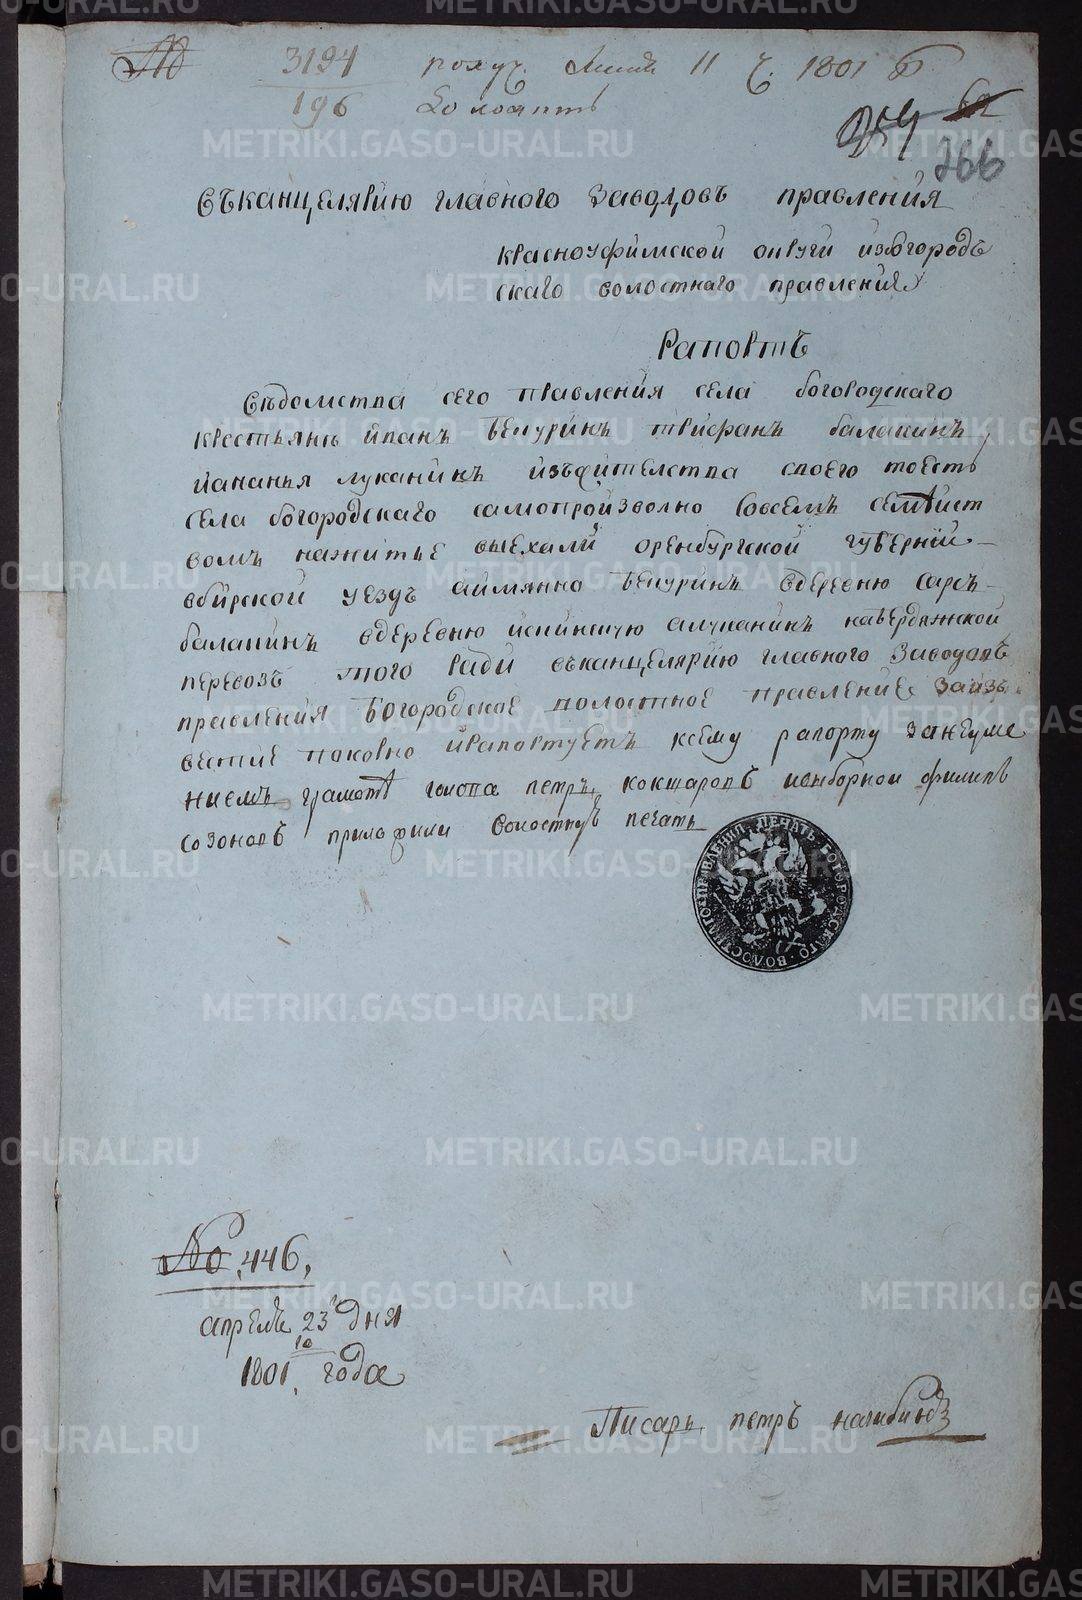 № 3194 получ. 11 ч. 1801
196
254
266
Въканцелярию главного заводовъ правления
красноуфимской округи изъбогородъ
скаго волостнаго правления
Рапортъ
Въдомства сего правления села богородскаго
крестьянъ иванъ бечуринъ трифанъ балапинъ
иананья луканинъ изъжителства своего тоесть
села богородскаго самопроизволно совсемъ семеист
вомъ нажитье выехали оренбургской губернии
вбирской уездъ аимянно бечуринъ вдеревню сарсъ
балапинъ вдеревню алуканинъ
перевозъ того ради въканцелярию главного заводовъ
правления богородское волостное правление заизъ
вестие покорно ирапортуетъ ксему рапорту занеуме
ниемъ грамоте голова петръ кокшаровъ ивыборной филипъ
созоновъ приложили волостную печать
ПЕЧАТЬ БОГОРОДСКАГО ВОЛОСТНАГО ПРАВЛЕНИЯ
№ 446,
апреля 23 дня
1801 го года
Писарь петръ нагибинъ
METRIKI.GASO-URAL.RU